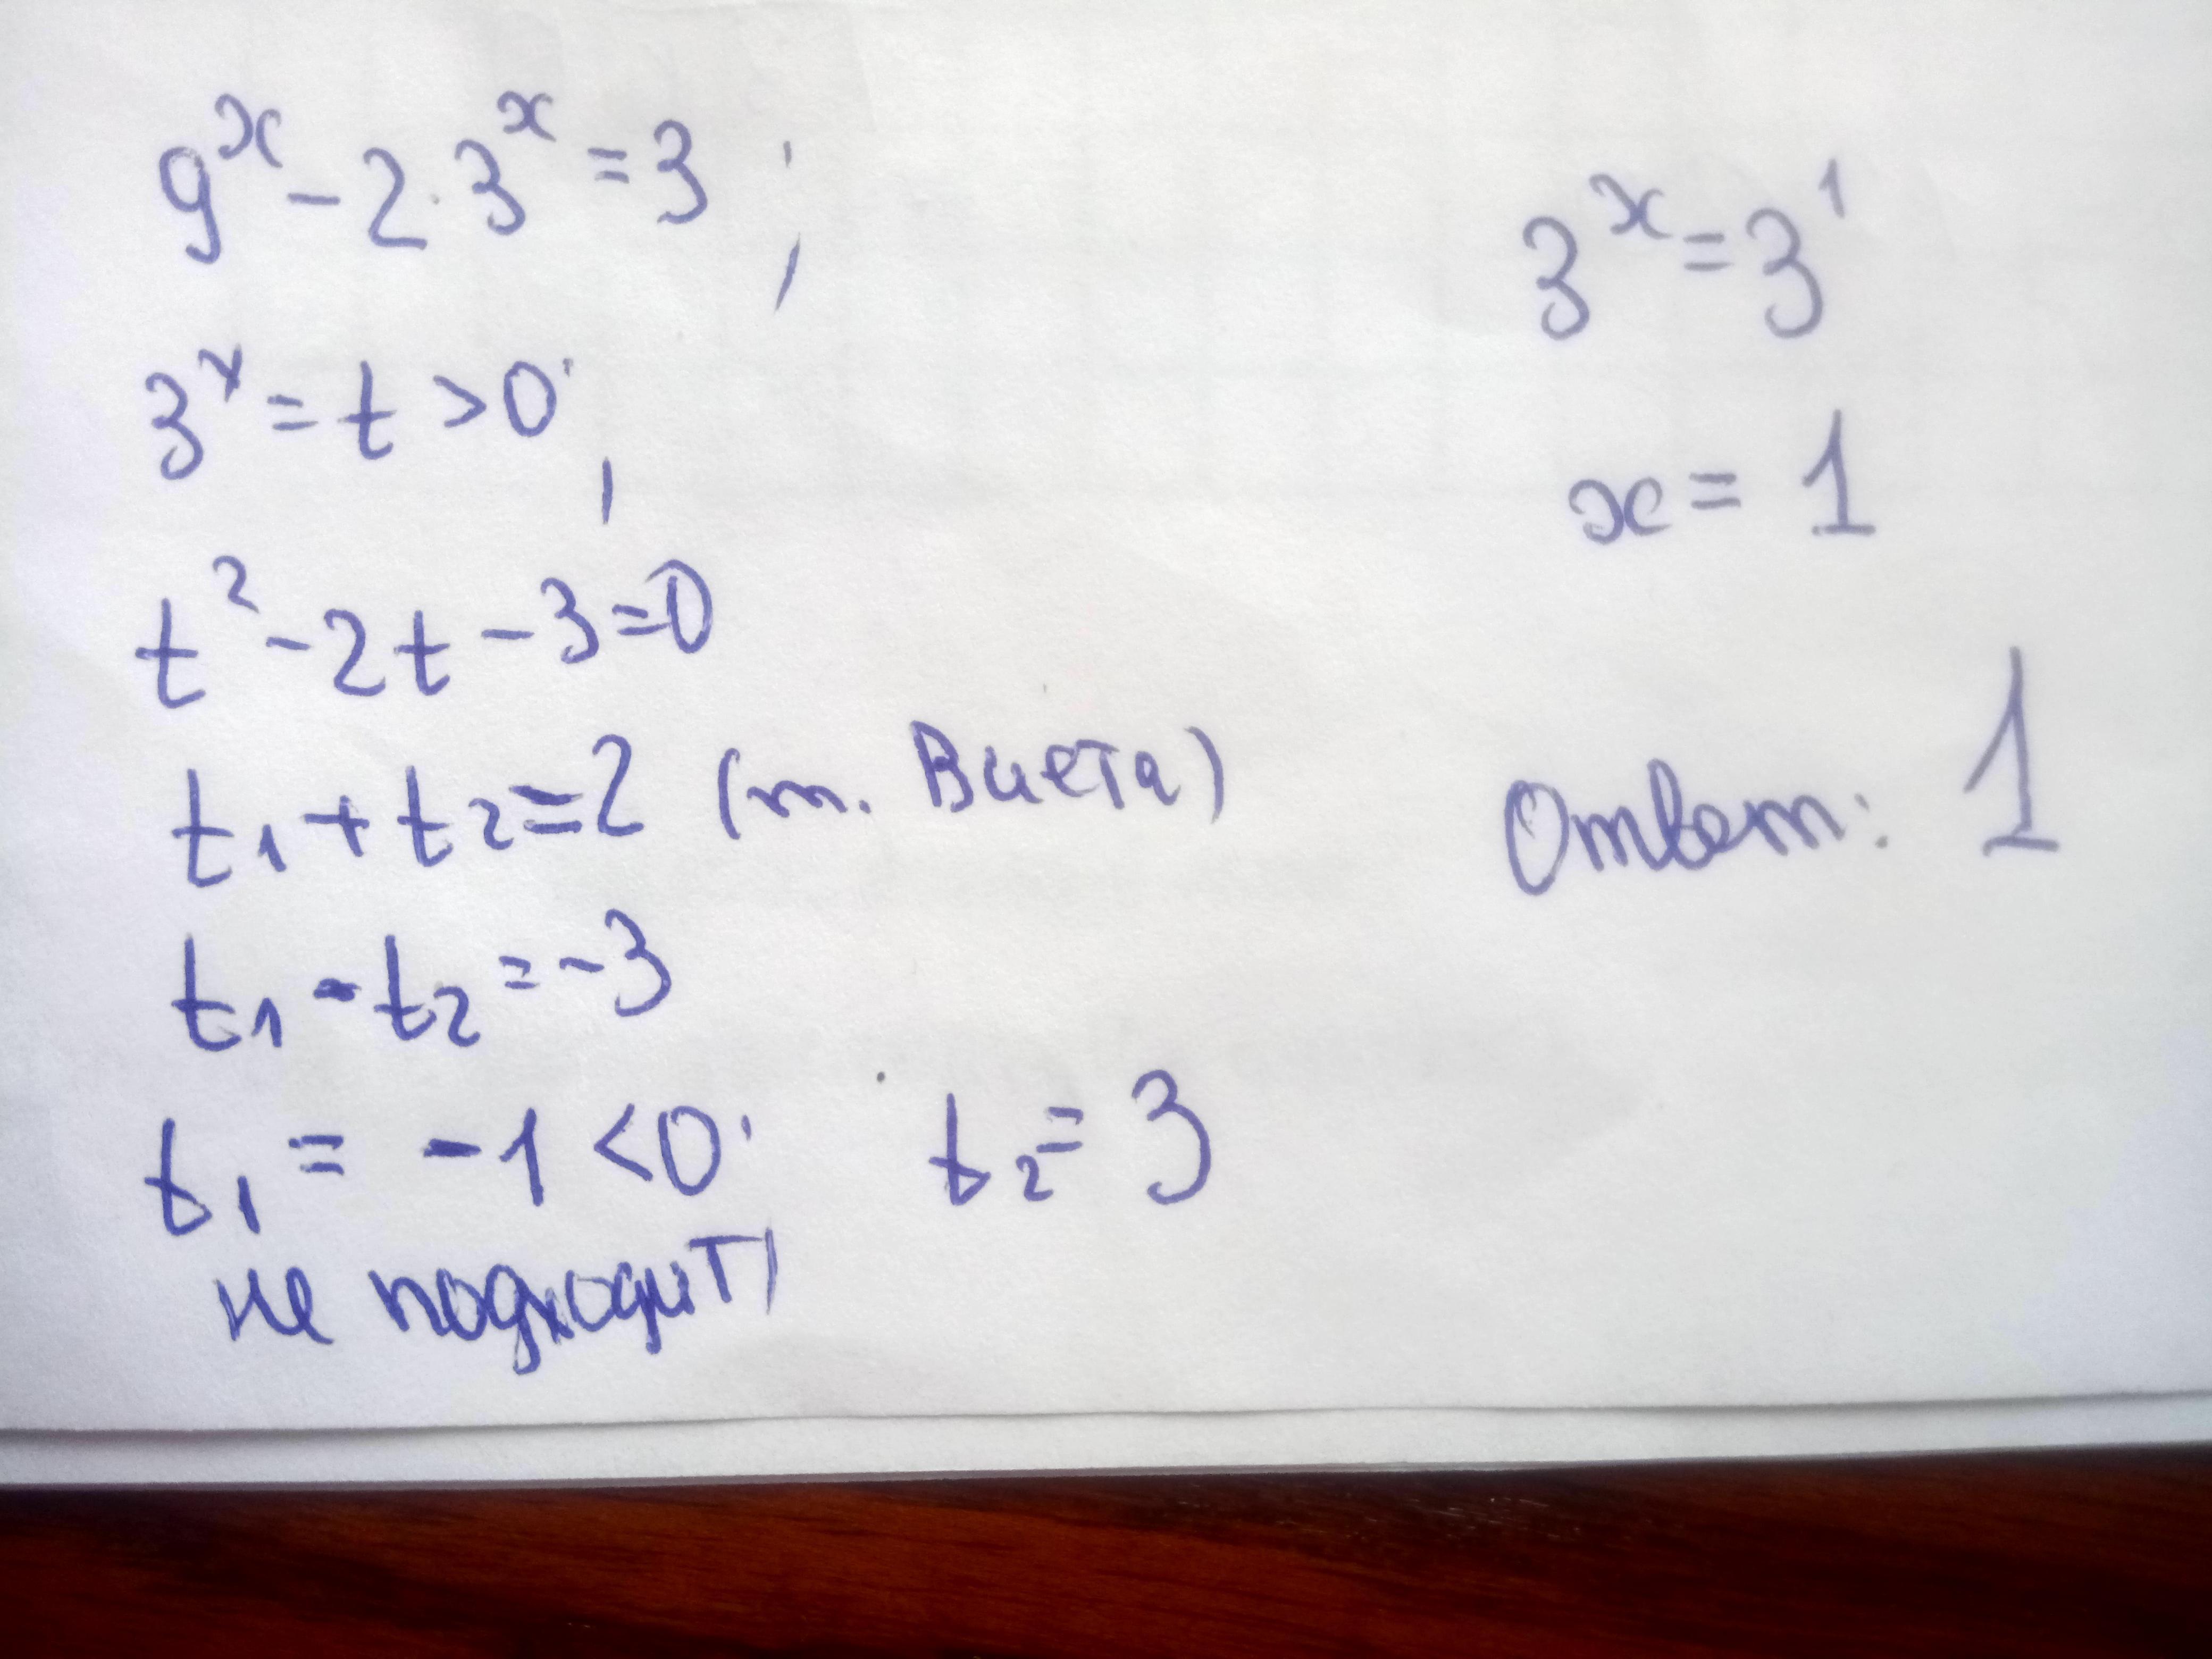 9^x - 2·3^x = 3;
3^x = t > 0;
t^2 - 2t - 3 = 0
t₁ + t₂ = 2 (т. Виета)
t₁ - t₂ = -3
t₁ = -1 < 0; t₂ = 3
не подходит
3^x = 3^1
x = 1
Ответ: 1